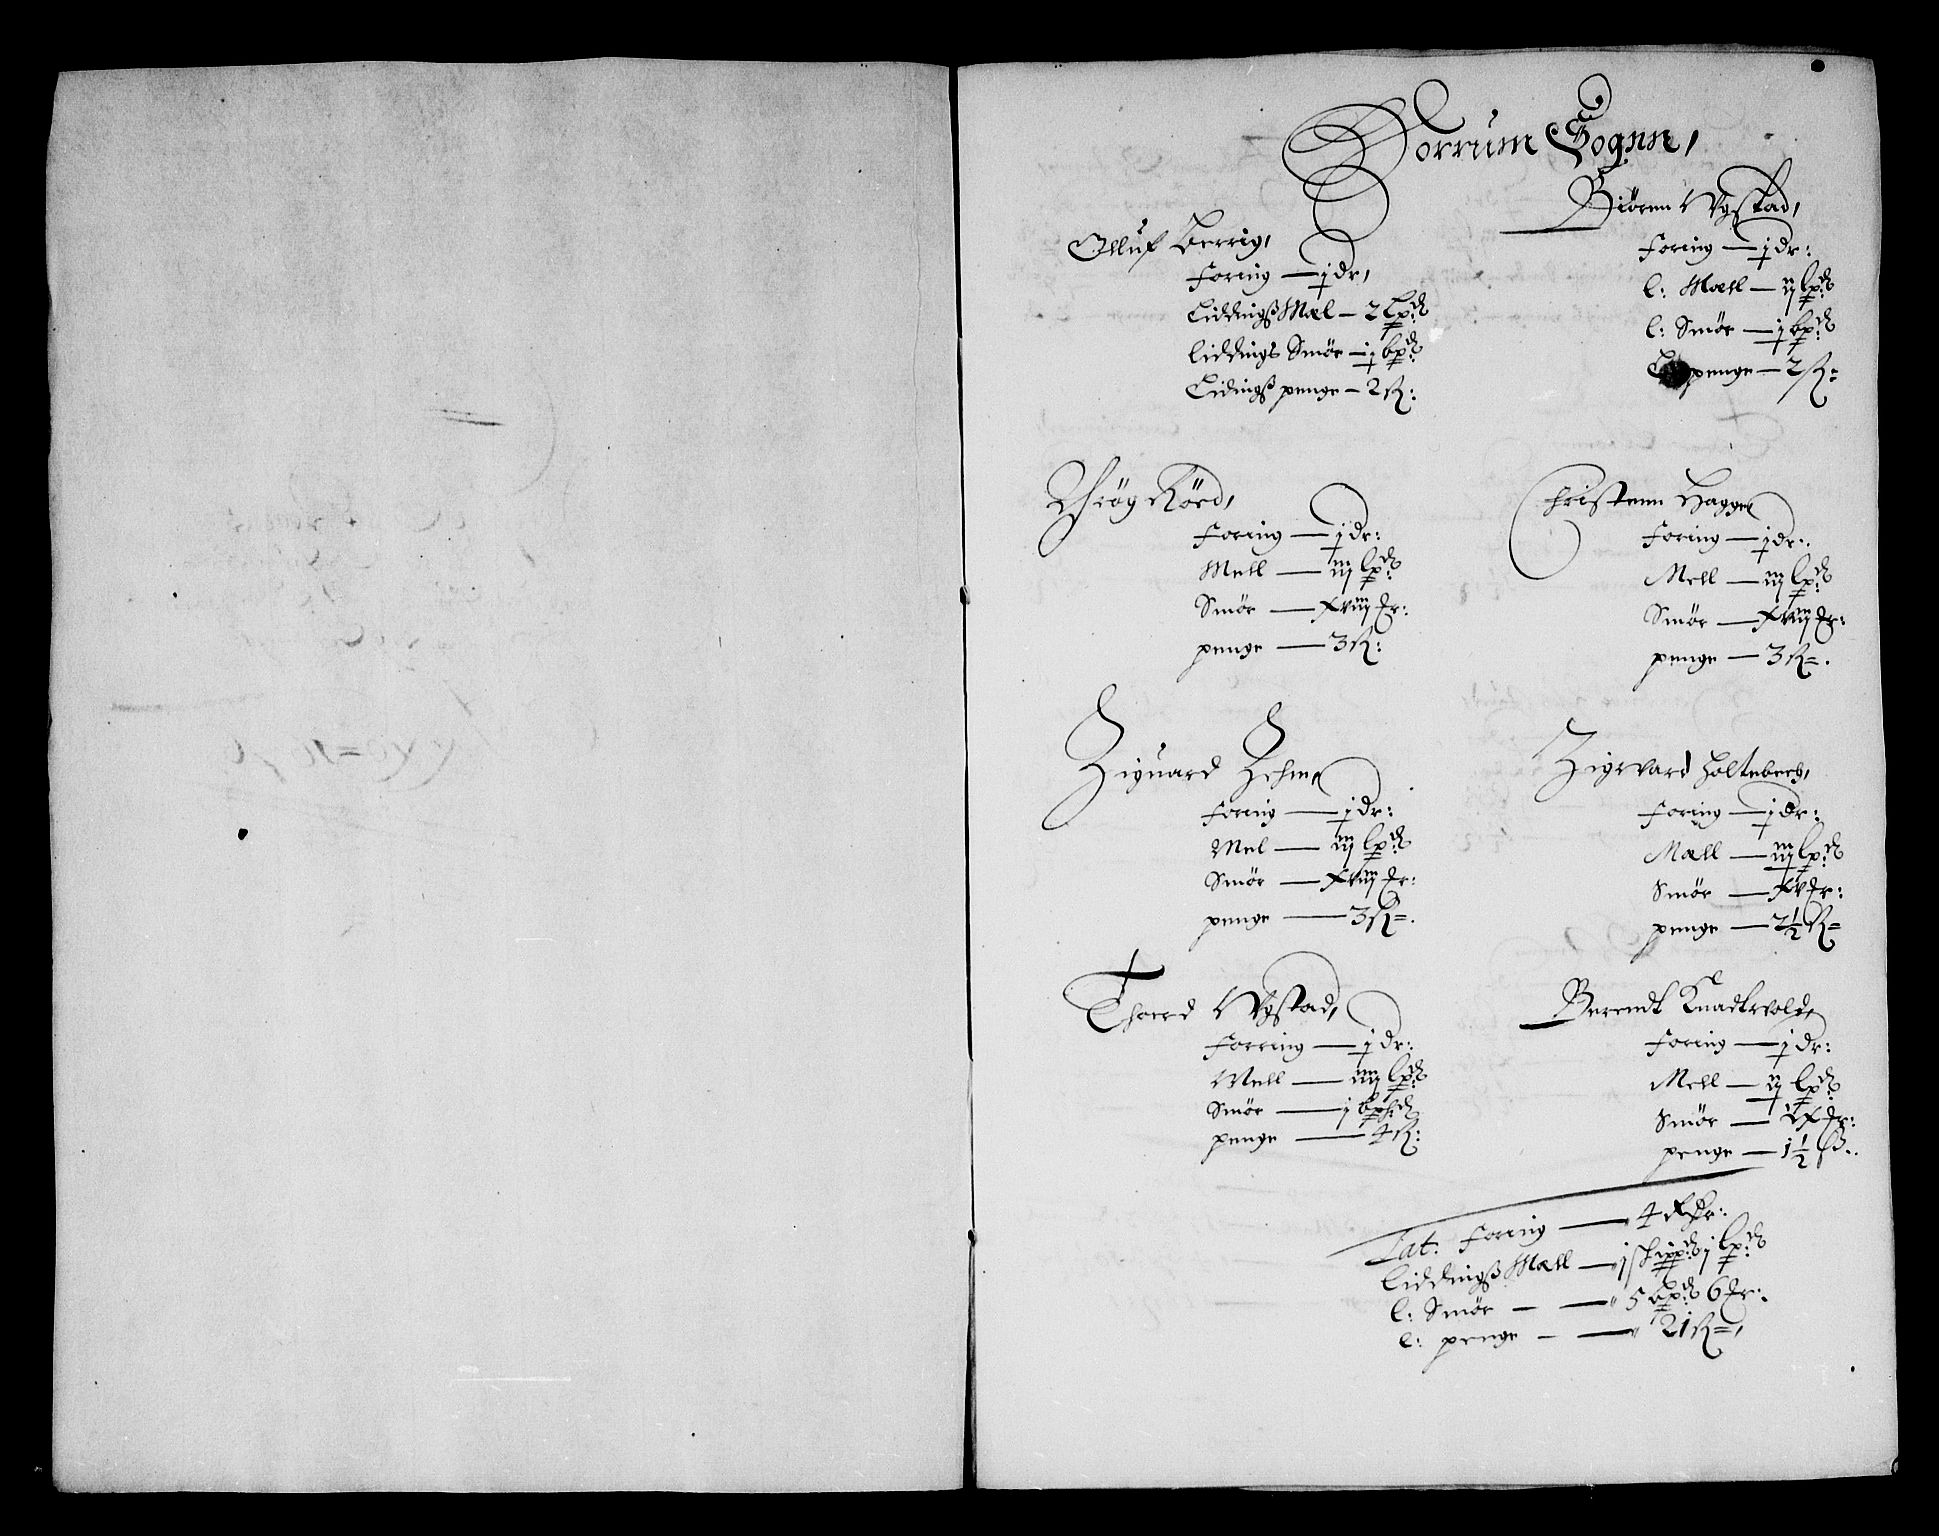 Borrum Sognn,
Olluf Berrig,
Foring — j dr,
Liddingß Mæl — 2 lp:d
liddings Smör — j bp:d
Lidingß penge — 2 sk:
Biören Wgstad,
Foring — j dr:
l: Mæell — ij lp:d
l: Smör — j bp:d
penge — 2 sk:
Foring — j dr:
Mell — iij lp:d
Smör — xviij Jr:
penge — 3 sk:
Christenn Hagge,
Foring — j dr:
Mell — iij lp:d
Smör — xviij Jr:
penge — 3 sk:
Ziguard
Foring — j dr:
Mel — iij lp:d
Smör — xviij Jr:
penge — 3 sk:
Zigward Holteberg,
Foring — j dr:
Mæll — iij lp:d
Smör — xv Jr:
penge — 2½ sk:
Thord Wgstad,
Forring — j dr:
Mell — iiij lp:d
Smör — j bp:d
penge — 4 sk:
Berendt Knadrvold,
Foring — j dr:
Mell — ij lp:d
Smör — ix Jr:
penge — 1½ ß:
Lat: Foring — 4
Liddingß Mæll — j schipp:d j lp:d
l: Smör — 5 bp:d 6 Jr:
l: penge — 21 sk: